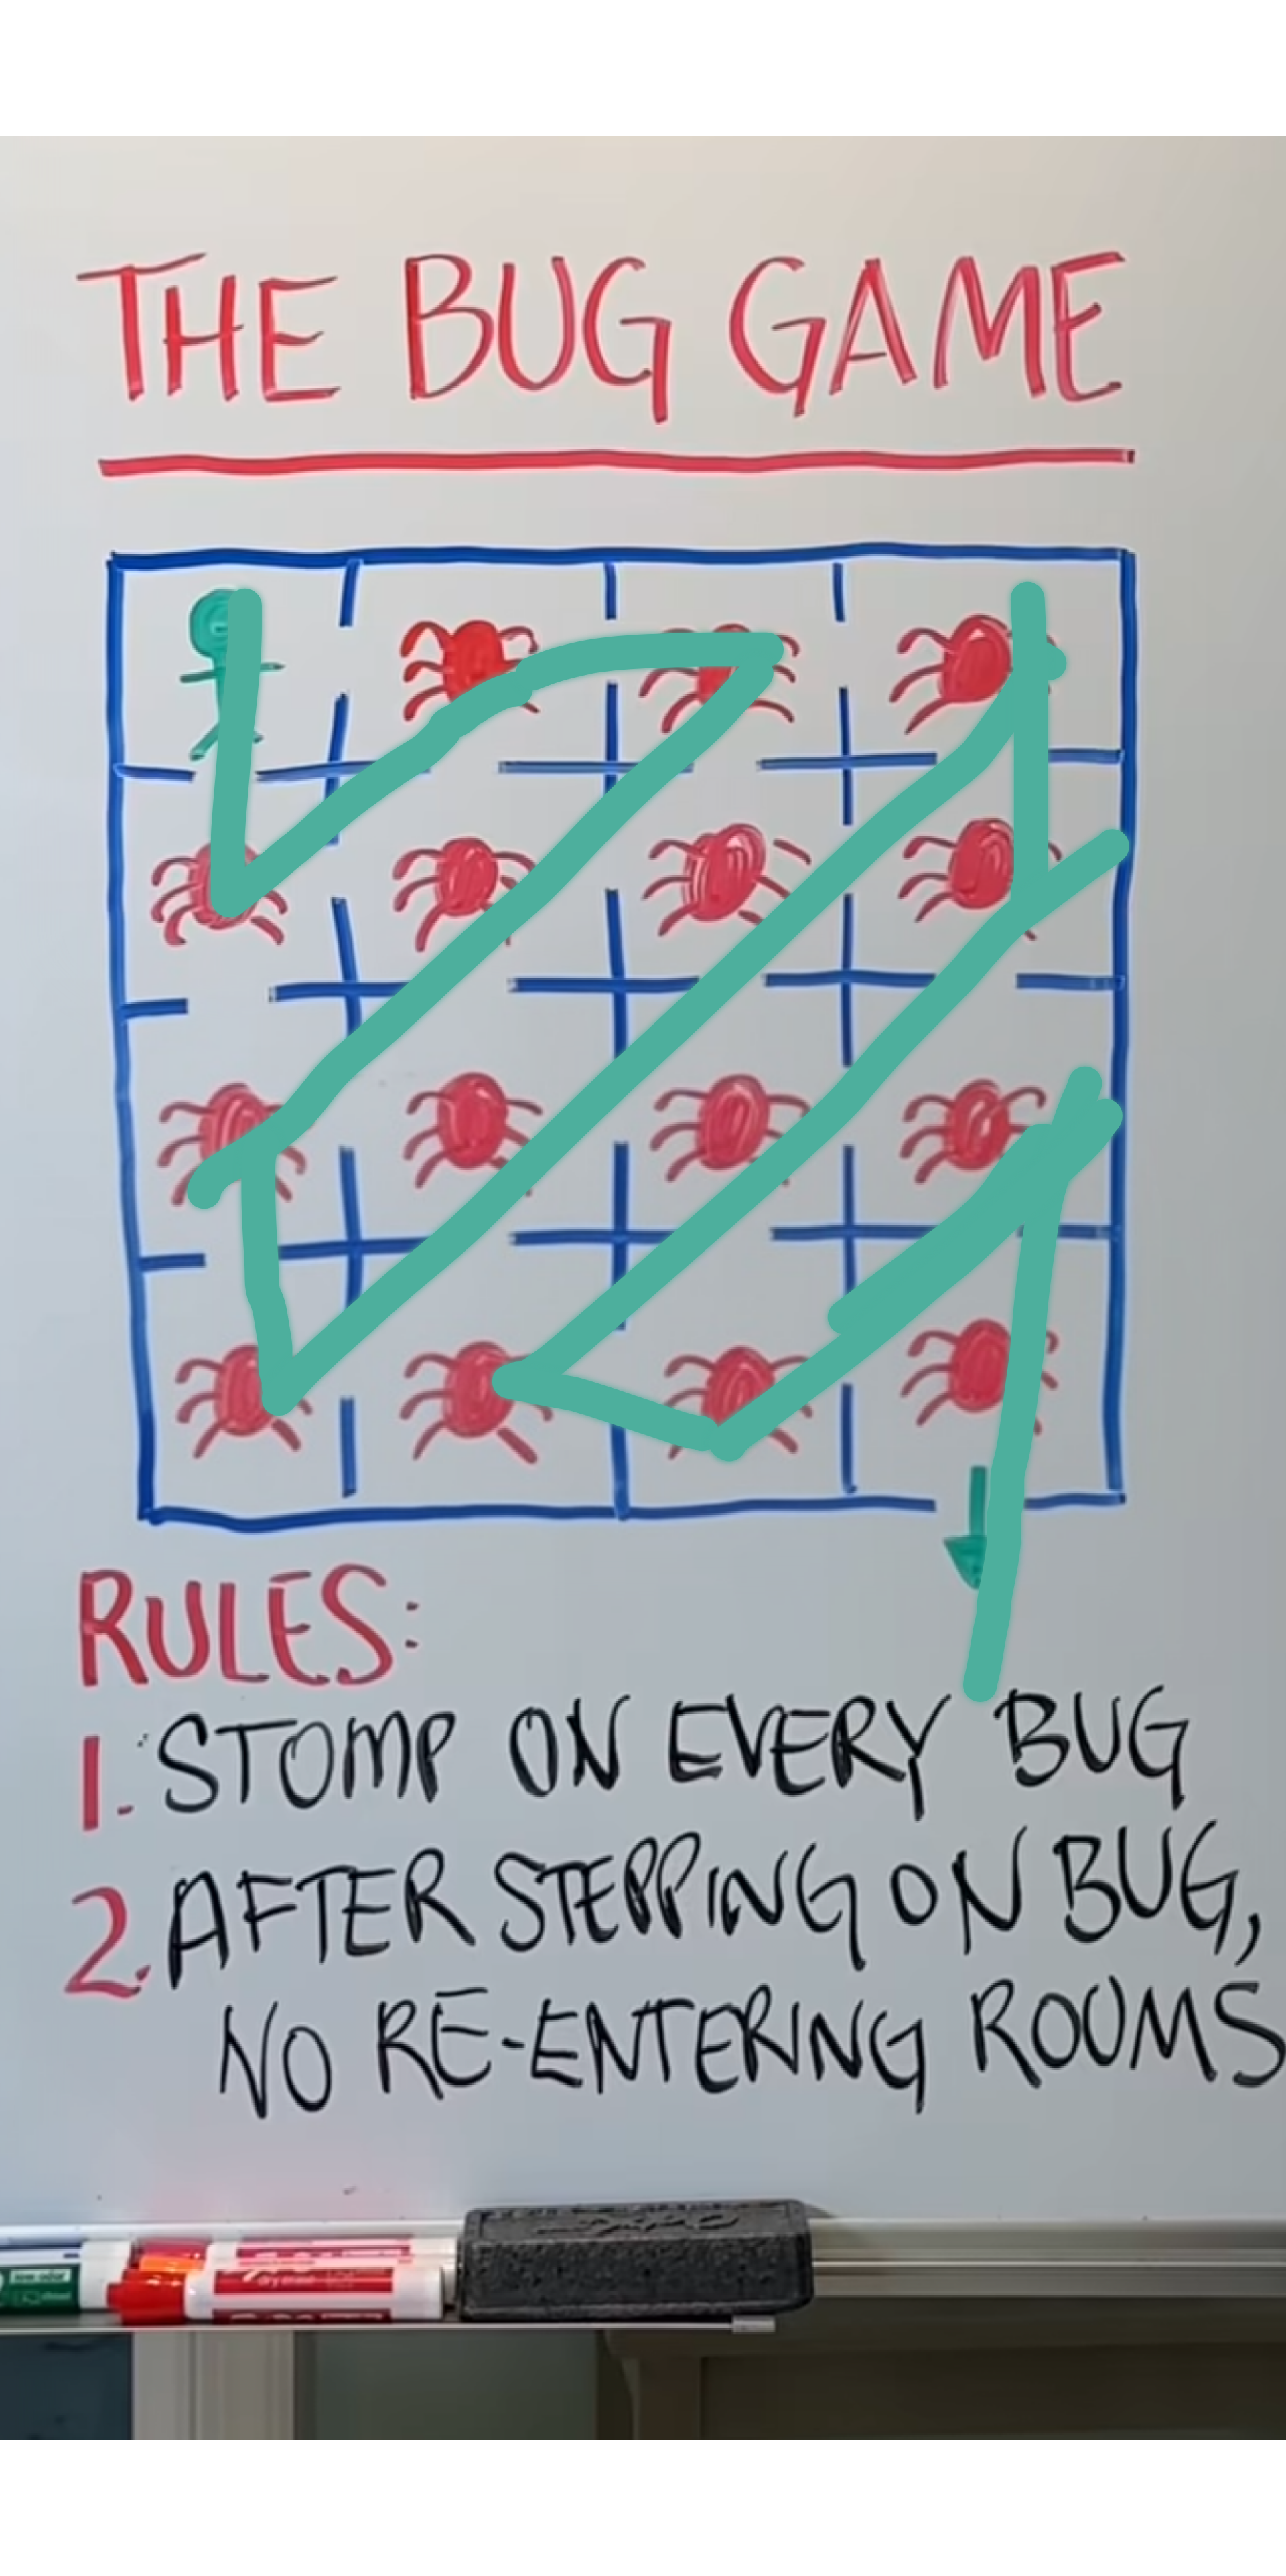 THE BUG GAME
RULES:
1. STOMP ON EVERY BUG
2. AFTER STEPPING ON BUG,
NO RE-ENTERING ROOMS